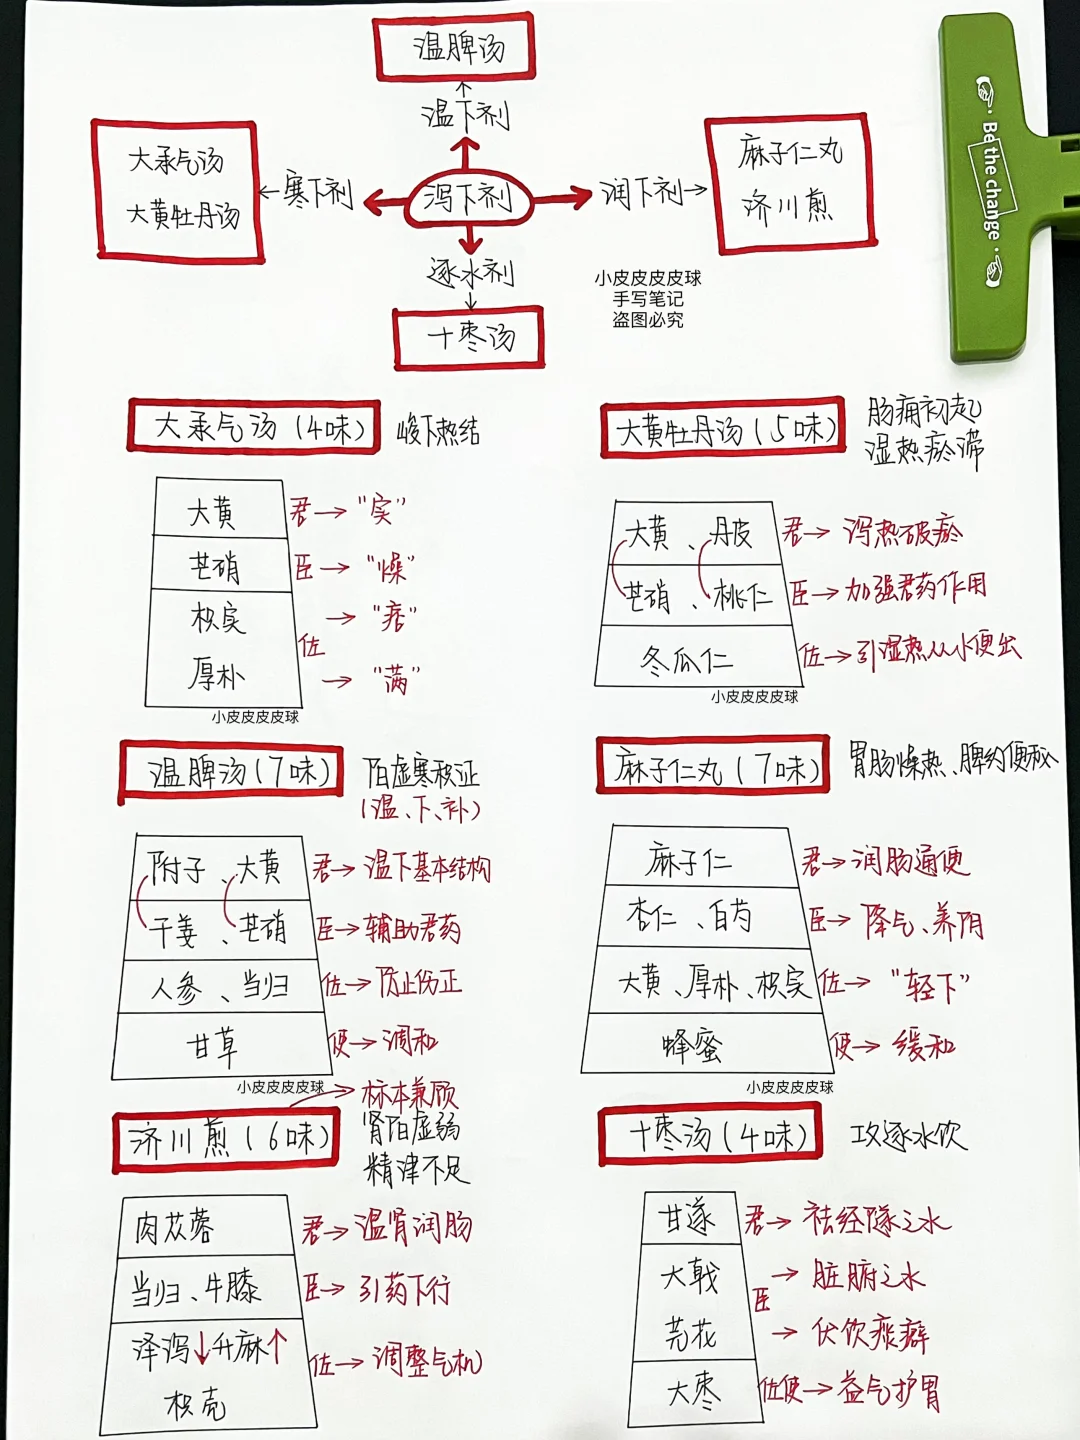 温脾汤
温下剂
大承气汤
大黄牡丹汤
寒下剂
泻下剂
润下剂
麻子仁丸
济川煎
逐水剂
十枣汤
小皮皮皮皮球
手写笔记
盗图必究
Be the change
大承气汤(4味) 峻下热结
大黄 君→“实”
芒硝 臣→“燥”
枳实 →“痞”
佐
厚朴 →“满”
小皮皮皮皮球
大黄牡丹汤(5味) 肠痈初起
湿热瘀滞
大黄、丹皮 君→泻热破瘀
芒硝、桃仁 臣→加强君药作用
冬瓜仁 佐→引湿热从小便出
小皮皮皮皮球
温脾汤(7味) 阳虚寒积证
(温、下、补)
附子、大黄 君→温下基本结构
干姜、芒硝 臣→辅助君药
人参、当归 佐→防止伤正
甘草 使→调和
小皮皮皮皮球
麻子仁丸(7味) 胃肠燥热、脾约便秘
麻子仁 君→润肠通便
杏仁、白芍 臣→降气、养阴
大黄、厚朴、枳实 佐→“轻下”
蜂蜜 使→缓和
小皮皮皮皮球
标本兼顾
济川煎(6味) 肾阳虚弱
精津不足
肉苁蓉 君→温肾润肠
当归、牛膝 臣→引药下行
泽泻↓升麻↑
佐→调整气机
枳壳
十枣汤(4味) 攻逐水饮
甘遂 君→祛经隧之水
大戟 →脏腑之水
臣
芫花 →伏饮痰癖
大枣 佐使→益气护胃